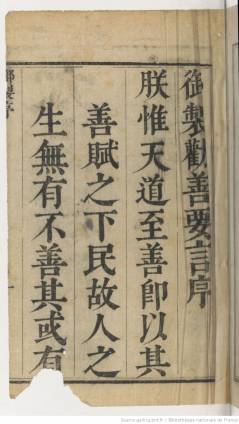 御製勸善要言序
朕惟天道至善即以其
善賦之下民故人之
生無有不善其或有
御製序
一
Source gallica.bnf.fr / Bibliothèque nationale de France